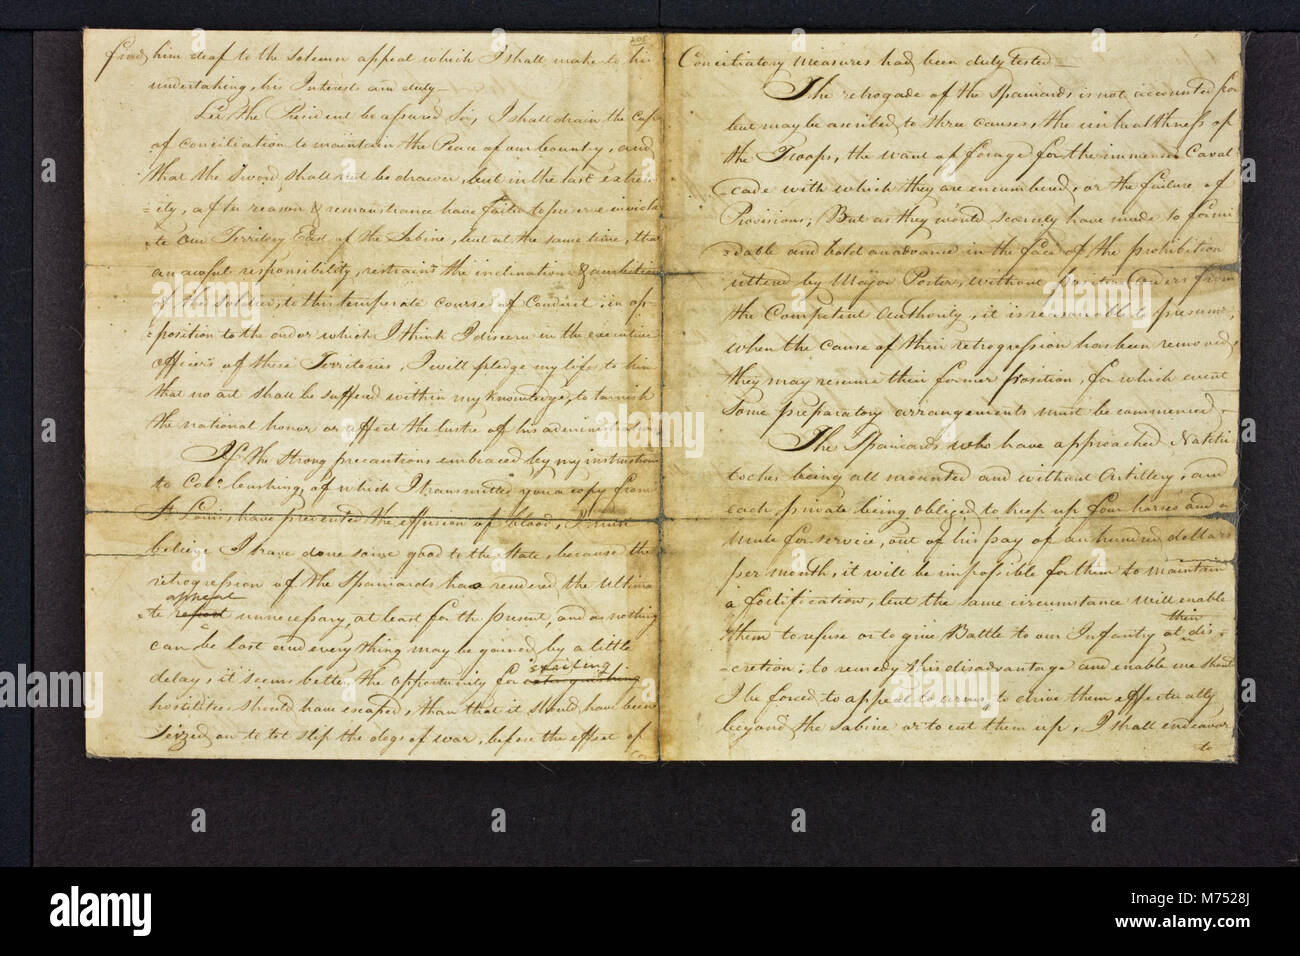 205
find, him deaf to the solemn appeal which I shall make to his
undertaking, his Interests and duty—
Let The President be assured Sir, I shall drain the cup
of conciliation to maintain the Peace of our Country, and
that the Sword shall not be drawn, but in the last extrem
=ity, after reason & remonstrance have failed to preserve inviola
=te our Territory East of the Sabine, but at the same time, that
an awful responsibility, restrains the inclinations & ambition
of the Soldier, to this temperate course of Conduct; in op=
=position to the ardor which I think I discern in the executive
officers of these Territories, I will pledge my life to him
that no act shall be suffered within my knowledge, to tarnish
the national honor or affect the lustre of his administration
If the Strong precautions embraced by my instructions
to Colo. Cushing, of which I transmitted you a copy from
St Louis, have prevented the effusion of blood, I must
believe I have done some good to the State, because the
retrogression of the Spaniards has rendered the Ultima
appeal
=te unnecessary, at least for the present, and as nothing
can be lost and every thing may be gained by a little
delay, it seems better the opportunity for
striking
hostilities should have escaped, than that it should have been
Seized on to let slip the dogs of war, before the effect of
Conciliatory measures had been duly tested—
The retrogade of the Spaniards is not accounted for
but may be ascribed to three causes, the unhealthiness of
the Troops, the want of forage for the immense Caval
=cade with which they are encumbered, or the failure of
Provisions; But as they would scarcely have made so formi
=dable and bold an advance in the face of the prohibition
uttered by Major Porter, without Orders from
the Competent Authority, it is reasonable to presume,
when the cause of their retrogression has been removed,
they may resume their former position, for which event
some preparatory arrangements must be commenced—
The Spaniards who have approached Natchi
toches being all mounted and without Artillery, and
each private being obliged to keep up four horses and a
Mule for service, out of his pay of an hundred dollars
per month, it will be impossible for them to maintain
a fortification, but the same circumstance will enable
their
them to refuse or to give Battle to our Infantry at dis=
=cretion; to remedy this disadvantage and enable me should
I be forced to appeal to arms, to drive them effectually
beyond the Sabine or to cut them up, I shall endeavor
to
alamy
M7528J
www.alamy.com